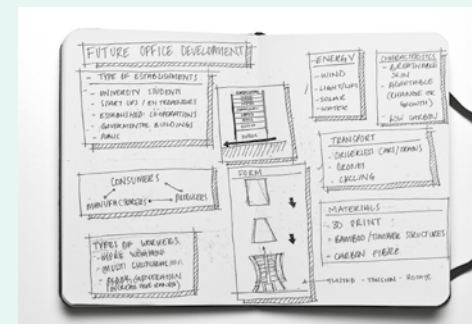 FUTURE OFFICE DEVELOPMENT
- TYPE OF ESTABLISHMENTS
- UNIVERSITY STUDENTS
- START UPS / ENTREPRENEURS
- ESTABLISHED
- GOVERNMENTAL BUILDINGS
- PUBLIC
CONSUMERS
MANUFACTURERS
PRODUCERS
TYPES OF WORKERS
- MORE WOMEN
- MULTI CULTURAL
- OLDER GENERATION
FORM
ENERGY
- WIND
- LIGHT
- SOLAR
- WATER
CHARACTERISTICS
- BREATHABLE
SKIN
- ADAPTABLE
(CHANGE OR
GROWTH)
- LOW CARBON
TRANSPORT
- DRIVERLESS CARS/TRAINS
- DRONES
- CYCLING
MATERIALS
- 3D PRINT
- BAMBOO/TIMBER STRUCTURES
- CARBON FIBRE
TWISTED - TENSION - ROTATE